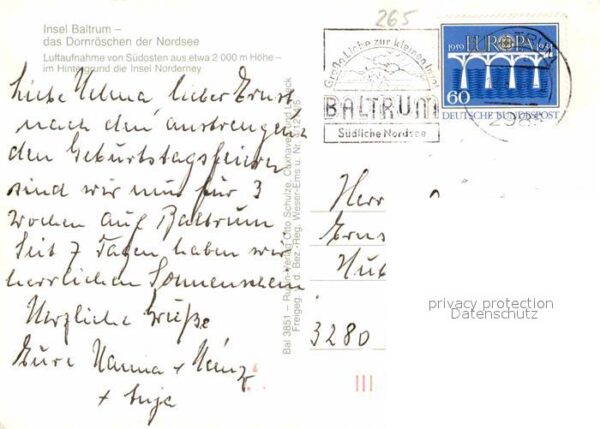 Insel Baltrum –
das Dornröschen der Nordsee
Luftaufnahme von Südosten aus etwa 2 000 m Höhe –
im Hintergrund die Insel Norderney
265
Große Liebe zur kleinen Insel
BALTRUM
Südliche Nordsee
1959 EUROPA 1984
60
DEUTSCHE BUNDESPOST
Liebe Helma, lieber Ernst
nach den anstrengen
den Geburtstagsfeiern
sind wir nun für 3
Wochen auf Baltrum
Seit 7 Tagen haben wir
herrlichen Sonnenschein
Herzliche Grüße
Eure Hanna + Heinz
+ Anja
Bal 3851 – Verlag Otto Schulze, Cuxhaven
Freigeg. d. Bez.-Reg. Weser-Ems u. Nr.
Herr
3280
privacy protection
Datenschutz